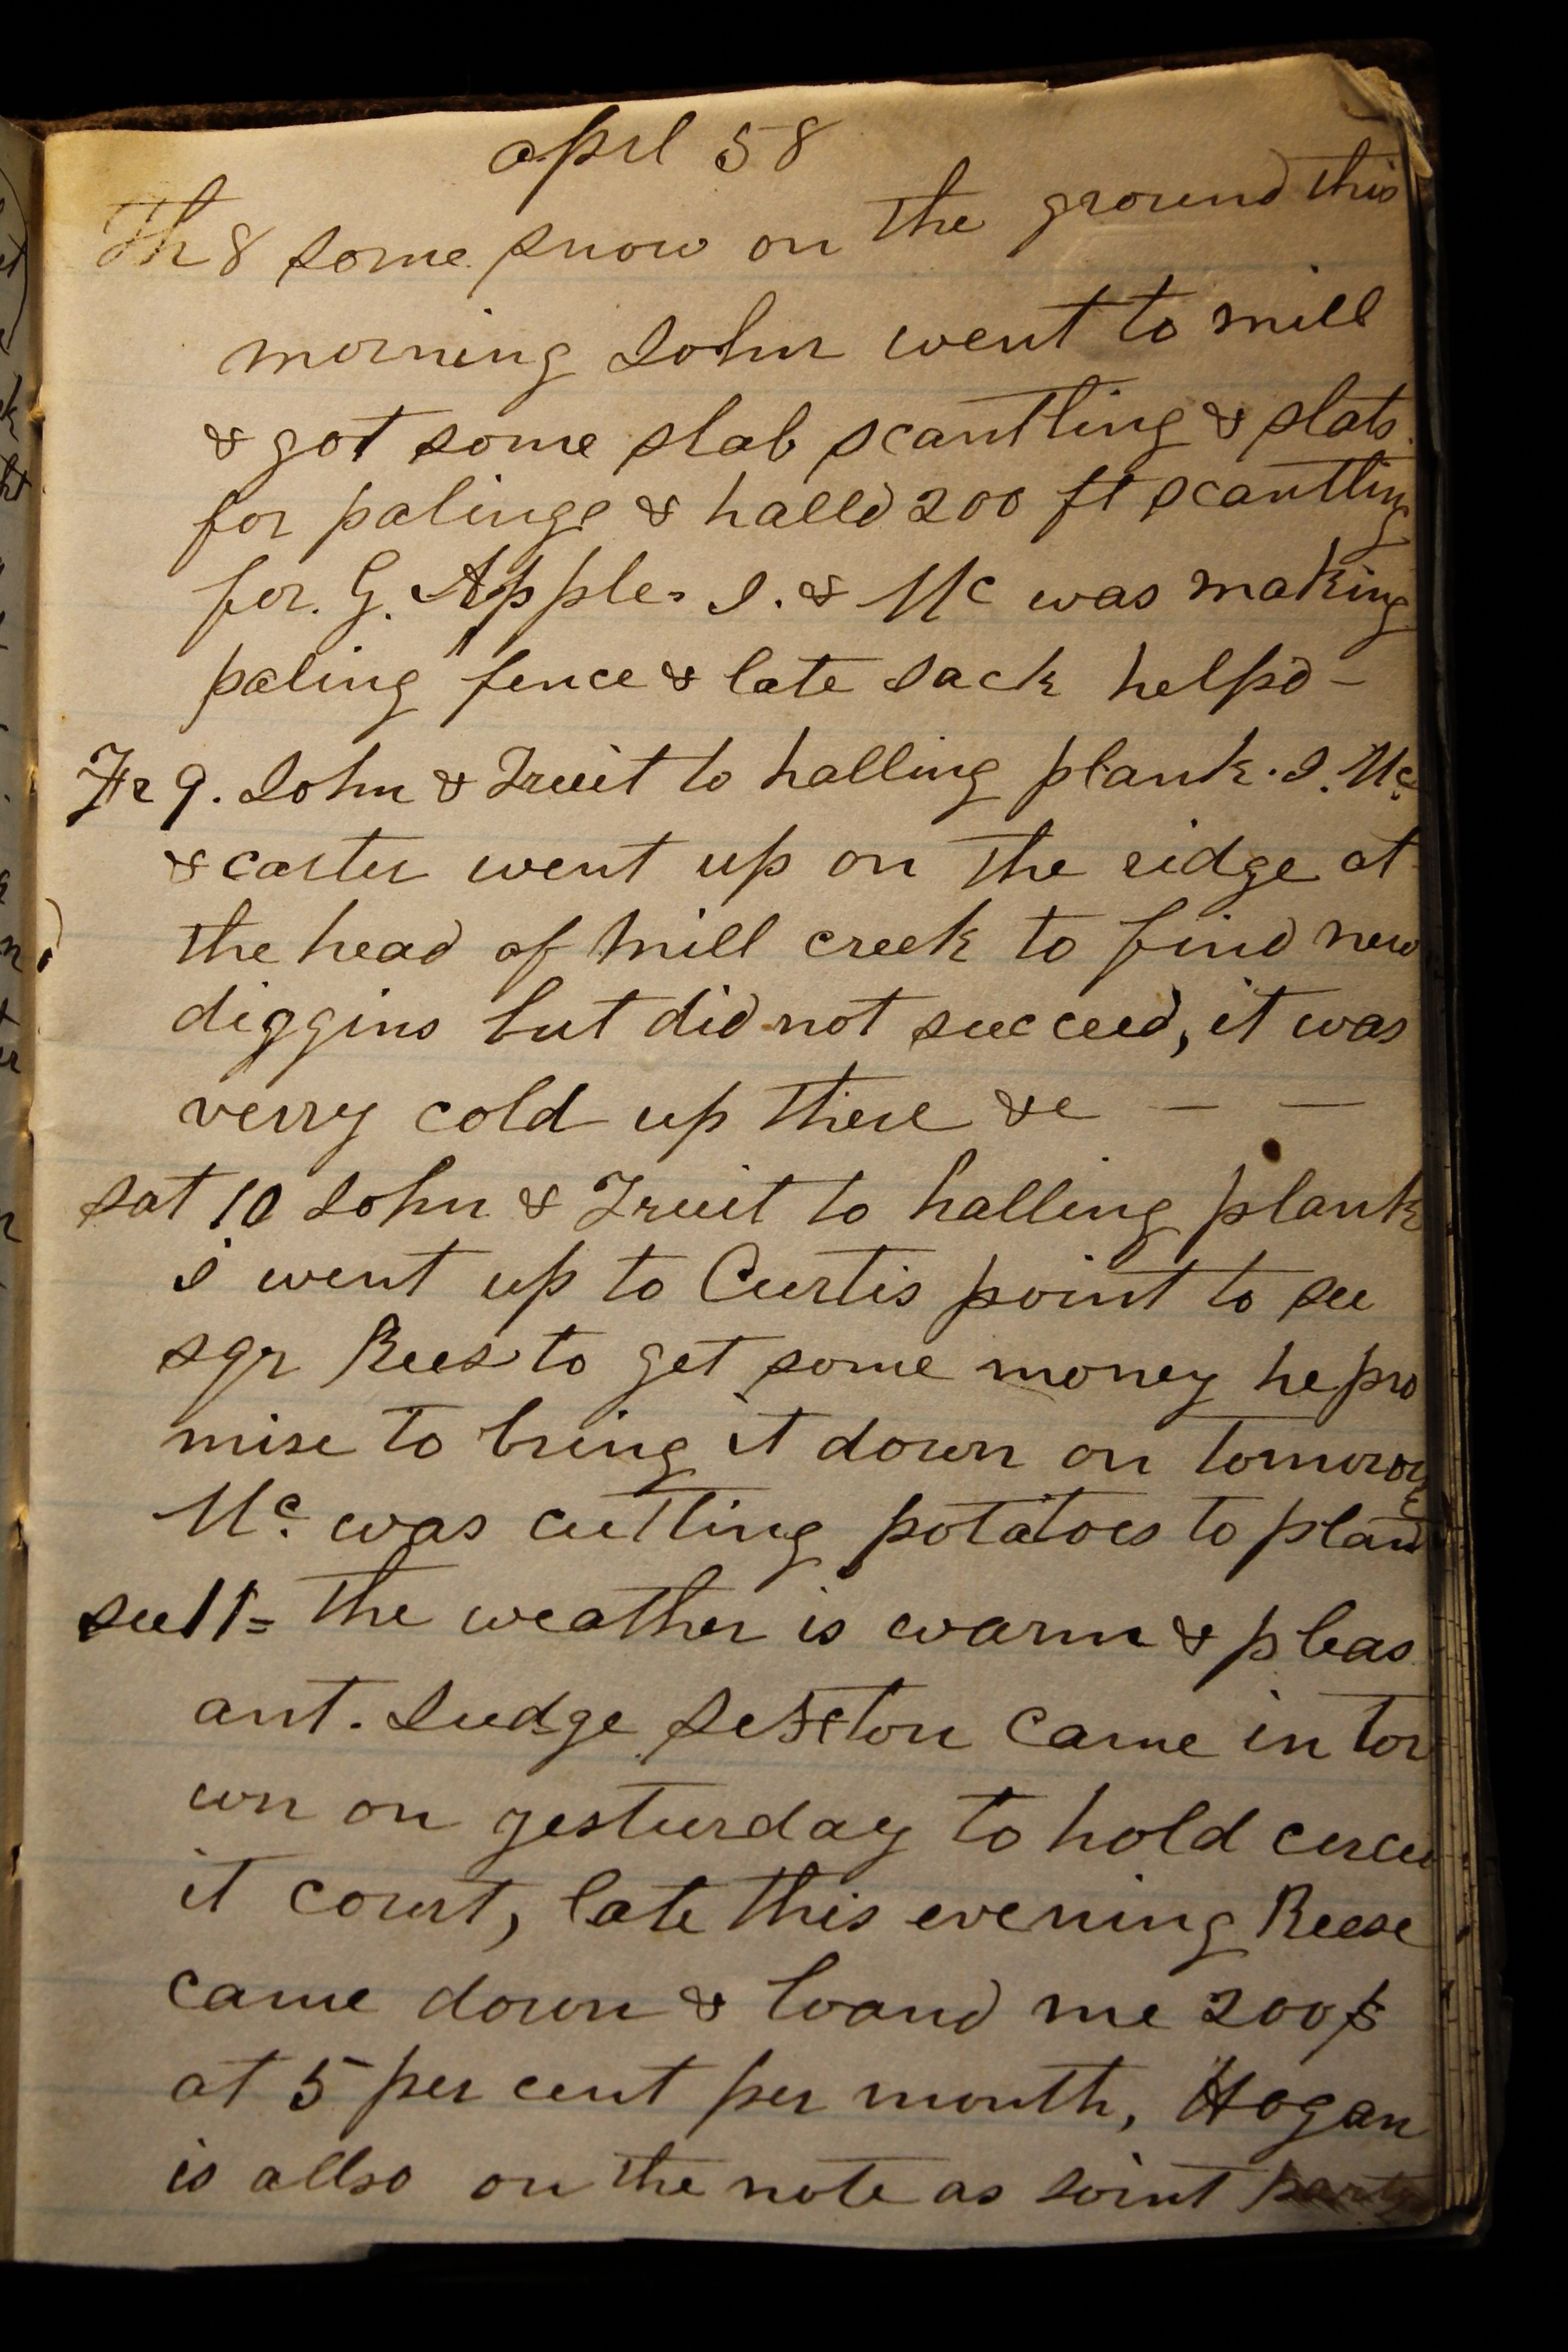 april 58
Th 8 some snow on the ground this
morning John went to mill
& got some slab scantling & slats
for palings & halld 200 ft scantling
for. G. Apple. I. & Mc was making
paling fence & late Jack helpd –
Fr 9. John & Truit to halling plank. I. Mc
& carter went up on the ridge at
the head of Mill creek to find new
diggins but did not succeed, it was
verry cold up there &c — —
sat 10 John & Truit to halling plank
I went up to Curtis point to see
sqr Rees to get some money he pro
mise to bring it down on tomorow
Mc. was cutting potatoes to plant
su 11= the weather is warm & pleas
ant. Judge Sexton came in tow
wn on yesturday to hold circu
it court, late this evening Reese
came down & loand me 200$
at 5 per cent per month, Hogan
is allso on the note as joint party